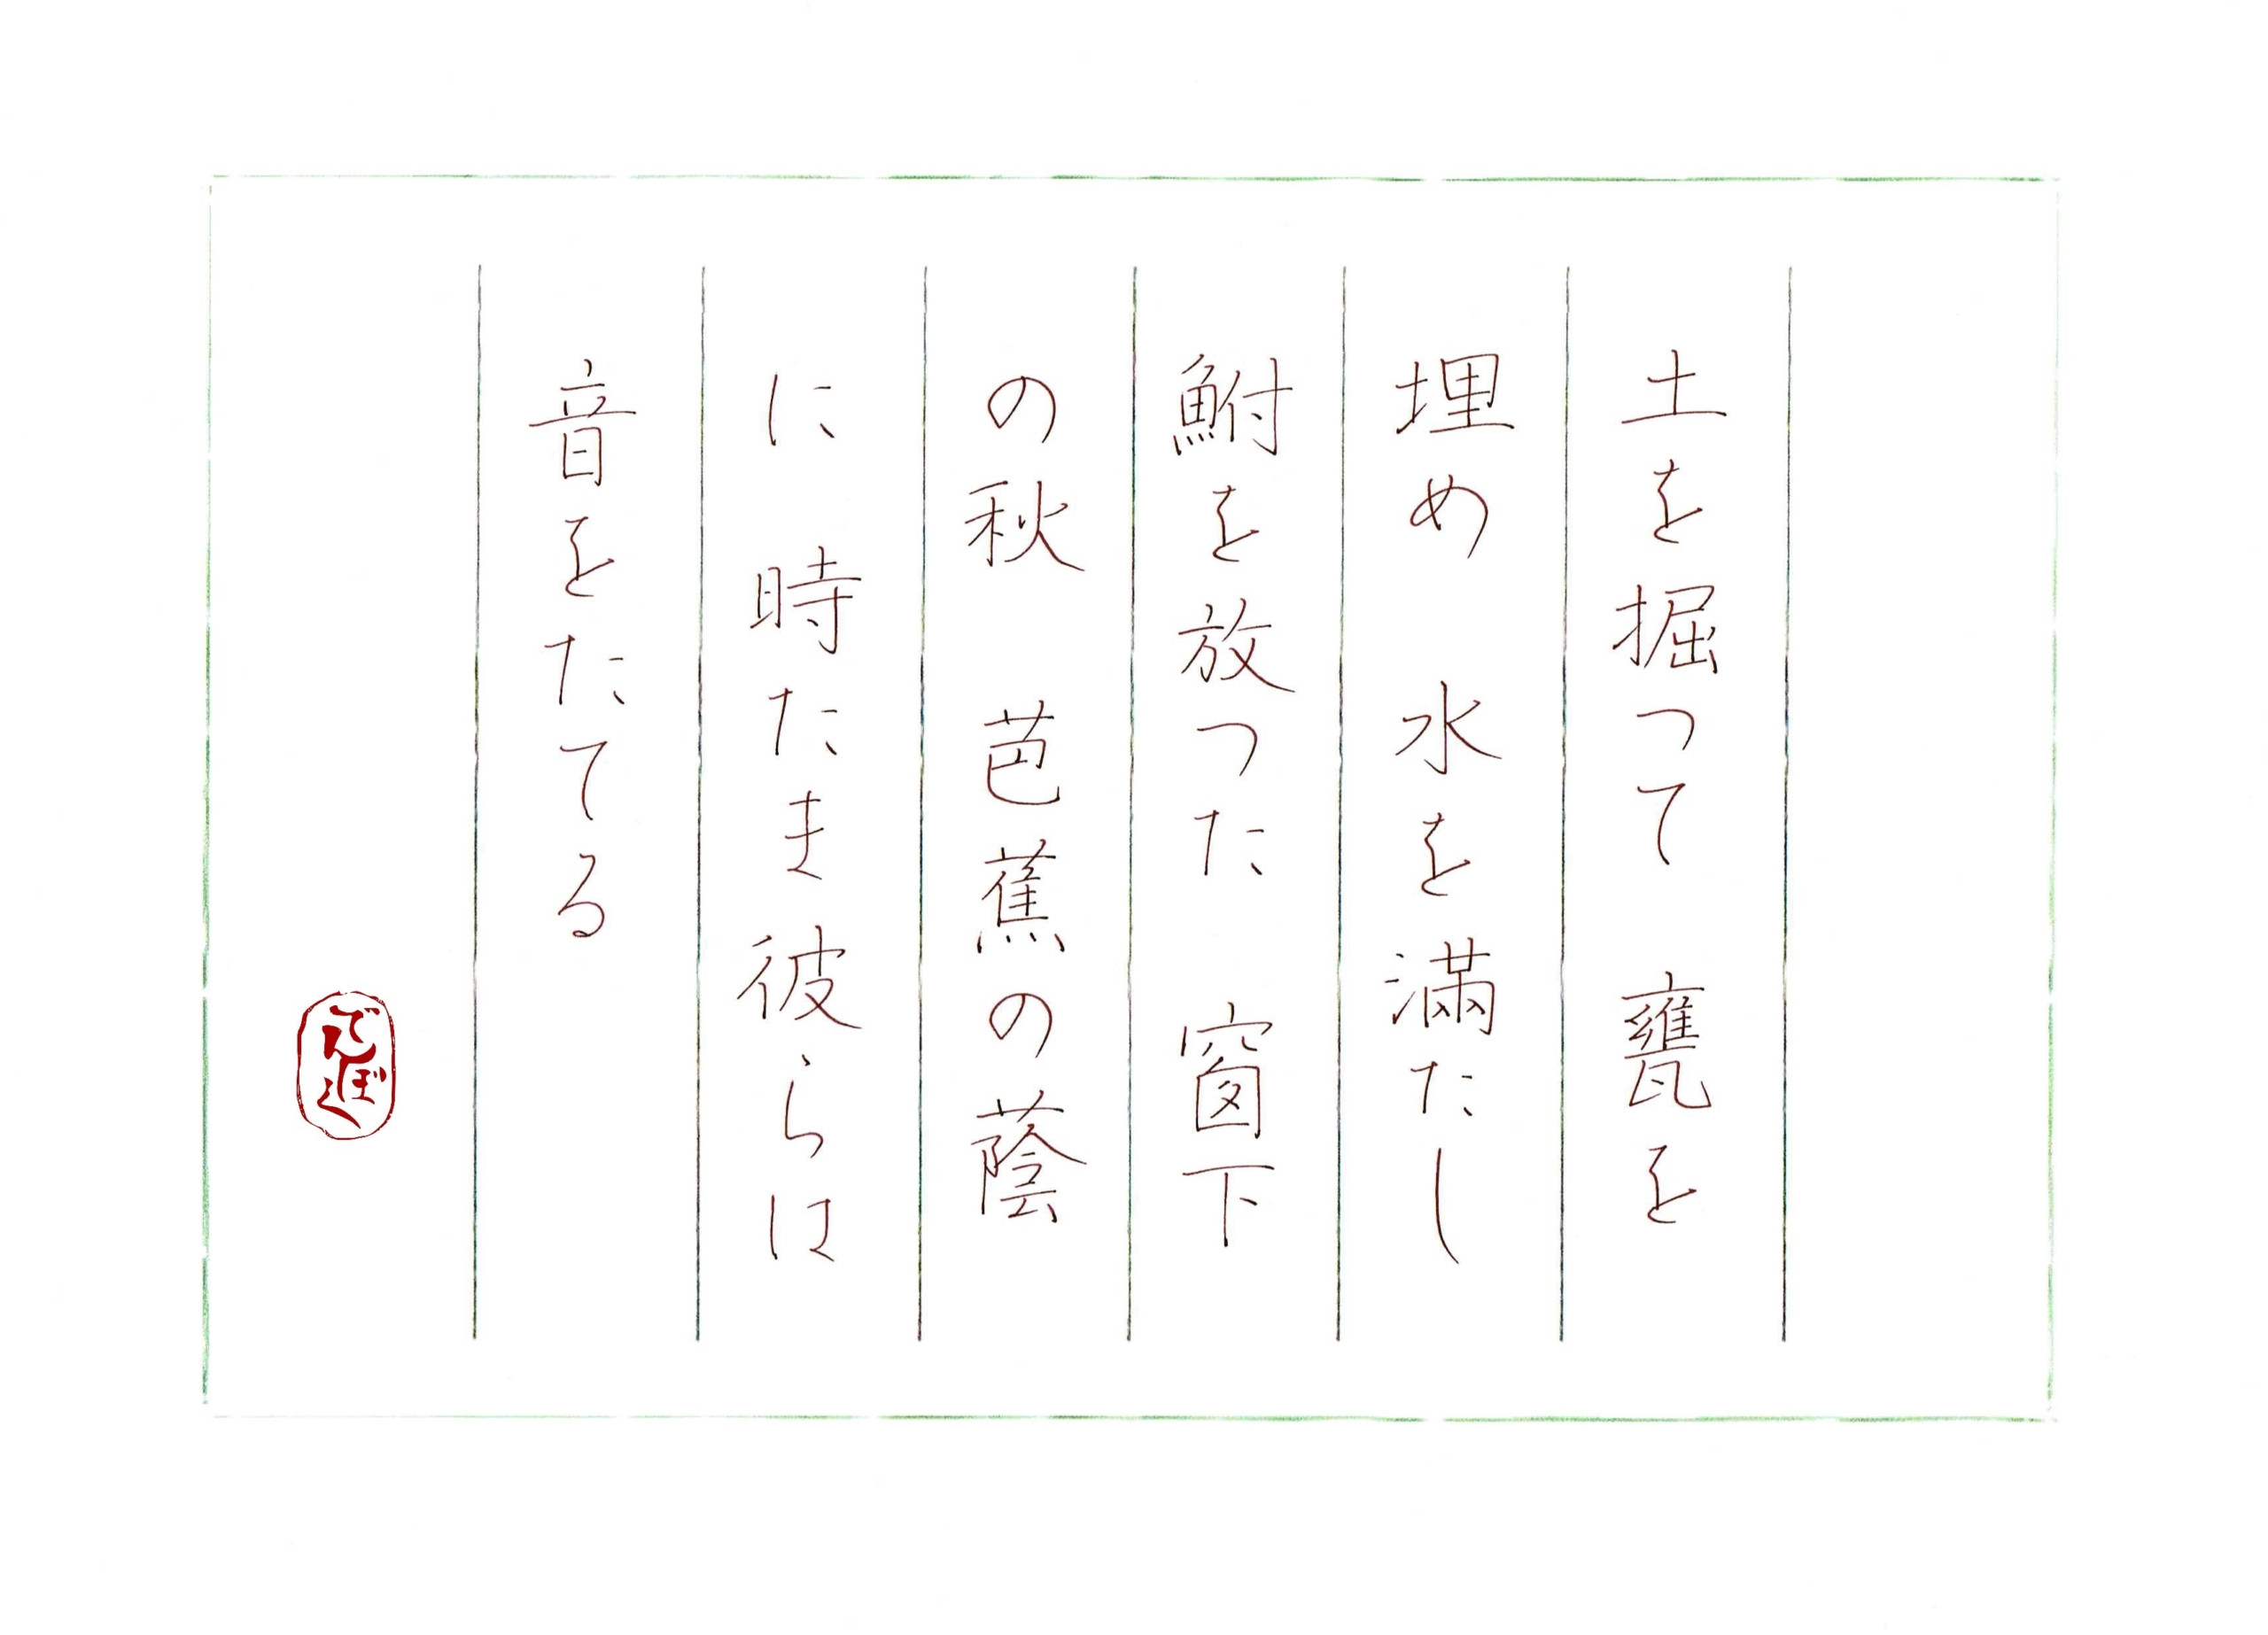 土を掘つて　甕を
埋め　水を満たし
鮒を放つた　窗下
の秋　芭蕉の蔭
に　時たま彼らは
音をたてる
でんぼく